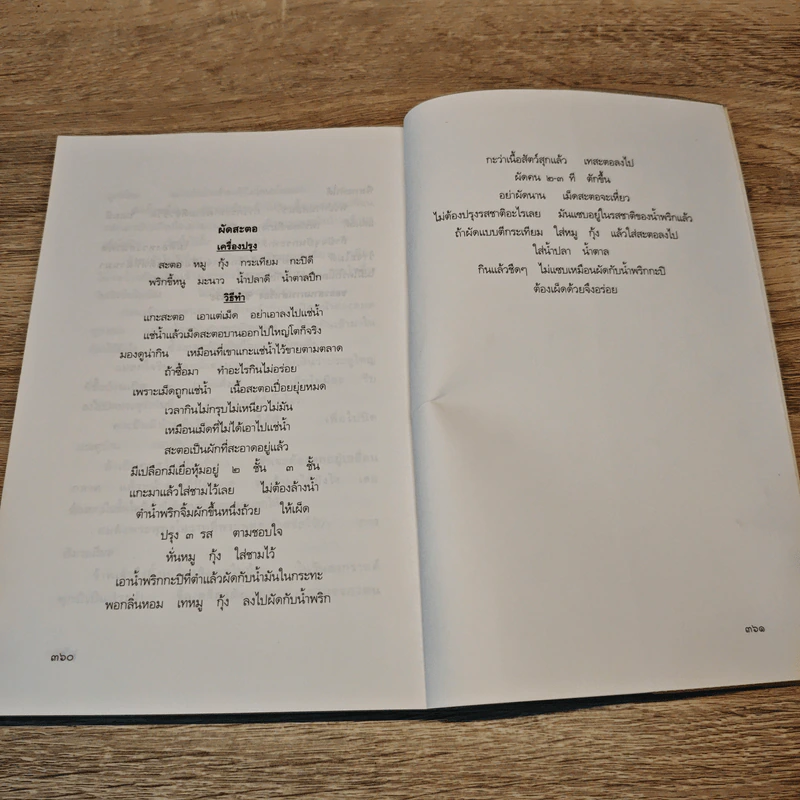 ผัดสะตอ
เครื่องปรุง
สะตอ หมู กุ้ง กระเทียม กะปิดี
พริกขี้หนู มะนาว น้ำปลาดี น้ำตาลปึก
วิธีทำ
แกะสะตอ เอาแต่เม็ด อย่าเอาลงไปแช่น้ำ
แช่น้ำแล้วเม็ดสะตอบานออกไปใหญ่โตก็จริง
มองดูน่ากิน เหมือนที่เขาแกะแช่น้ำไว้ขายตามตลาด
ถ้าซื้อมา ทำอะไรกินไม่อร่อย
เพราะเม็ดถูกแช่น้ำ เนื้อสะตอเปื่อยยุ่ยหมด
เวลากินไม่กรุบไม่เหนียวไม่มัน
เหมือนเม็ดที่ไม่ได้เอาไปแช่น้ำ
สะตอเป็นผักที่สะอาดอยู่แล้ว
มีเปลือกมีเยื่อหุ้มอยู่ ๒ ชั้น ๓ ชั้น
แกะมาแล้วใส่ชามไว้เลย ไม่ต้องล้างน้ำ
ตำน้ำพริกจิ้มผักขึ้นหนึ่งถ้วย ให้เผ็ด
ปรุง ๓ รส ตามชอบใจ
หั่นหมู กุ้ง ใส่ชามไว้
เอาน้ำพริกกะปิที่ตำแล้วผัดกับน้ำมันในกระทะ
พอกลิ่นหอม เทหมู กุ้ง ลงไปผัดกับน้ำพริก
๓๖๐
กะว่าเนื้อสัตว์สุกแล้ว เทสะตอลงไป
ผัดคน ๒-๓ ที ตักขึ้น
อย่าผัดนาน เม็ดสะตอจะเหี่ยว
ไม่ต้องปรุงรสชาติอะไรเลย มันแซบอยู่ในรสชาติของน้ำพริกแล้ว
ถ้าผัดแบบตีกระเทียม ใส่หมู กุ้ง แล้วใส่สะตอลงไป
ใส่น้ำปลา น้ำตาล
กินแล้วชืดๆ ไม่แซบเหมือนผัดกับน้ำพริกกะปิ
ต้องเผ็ดด้วยจึงอร่อย
๓๖๑